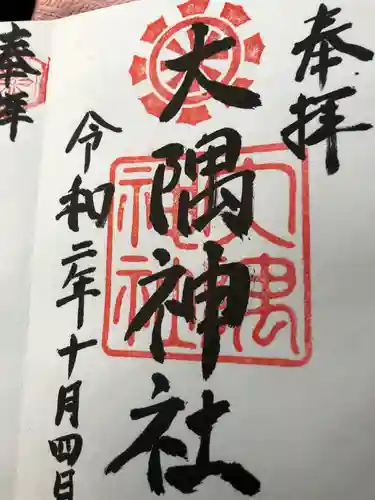 奉拝
大隅神社
令和二年十月四日
大隅神社
奉拝